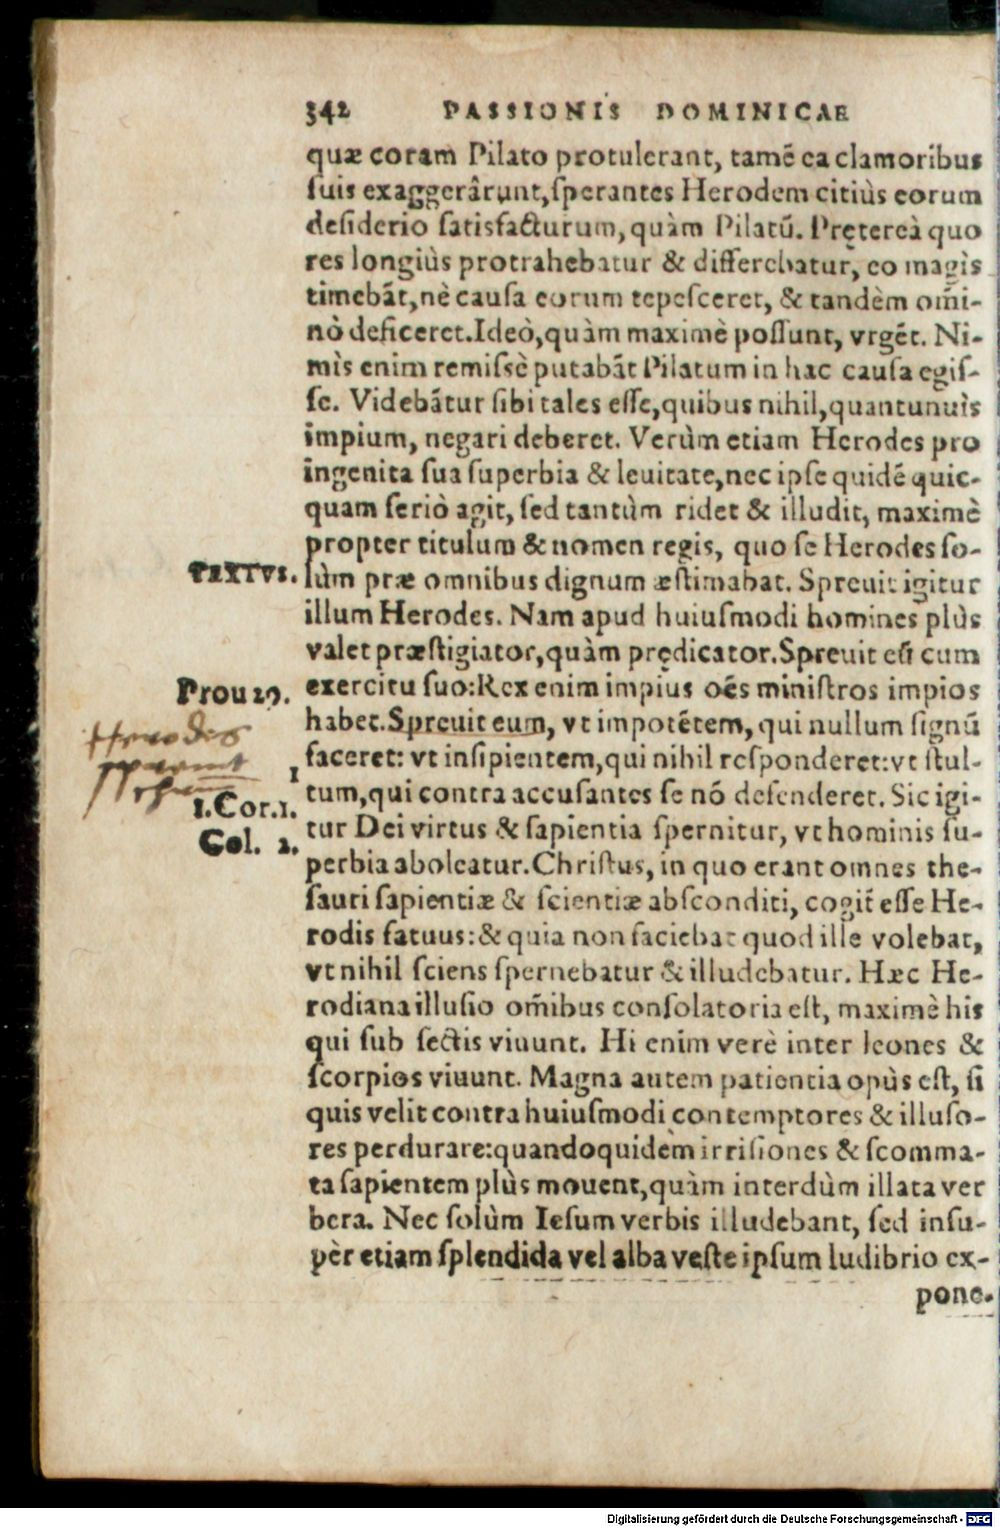 342 PASSIONIS DOMINICAE
quæ coram Pilato protulerant, tamē ea clamoribus
suis exaggerârunt, sperantes Herodem citiùs eorum
desiderio satisfacturum, quàm Pilatū. Pręтereà quo
res longiùs protrahebatur & differebatur, eo magìs
timebāt, nè causa eorum tepesceret, & tandèm om̄i-
nò deficeret. Ideò, quàm maximè possunt, vrgēt. Ni-
mìs enim remissè putabāt Pilatum in hac causa egis-
se. Videbātur sibi tales esse, quibus nihil, quantumuìs
impium, negari deberet. Verùm etiam Herodes pro
ingenita sua superbia & leuitate, nec ipse quidē quic-
quam seriò agit, sed tantùm ridet & illudit, maximè
propter titulum & nomen regis, quo se Herodes so-
TEXTVS. lùm præ omnibus dignum æstimabat. Spreuit igitur
illum Herodes. Nam apud huiusmodi homines plùs
valet præstigiator, quàm prędicator. Spreuit eū cum
Prou 29. exercitu suo: Rex enim impius oēs ministros impios
habet. Spreuit eum, vt impotētem, qui nullum signū
Herodes
spernit
1 faceret: vt insipientem, qui nihil responderet: vt stul-
1. Cor. 1. tum, qui contra accusantes se nō defenderet. Sic igi-
Col. 2. tur Dei virtus & sapientia spernitur, vt hominis su-
perbia aboleatur. Christus, in quo erant omnes the-
sauri sapientiæ & scientiæ absconditi, cogit̄ esse He-
rodis fatuus: & quia non faciebat quod ille volebat,
vt nihil sciens spernebatur & illudebatur. Hæc He-
rodiana illusio om̄ibus consolatoria est, maximè his
qui sub sectis viuunt. Hi enim verè inter leones &
scorpios viuunt. Magna autem patientia opùs est, si
quis velit contra huiusmodi contemptores & illuso-
res perdurare: quandoquidèm irrisiones & scomma-
ta sapientem plùs mouent, quàm interdùm illata ver
bera. Nec solùm Iesum verbis illudebant, sed insu-
pèr etiam splendida vel alba veste ipsum ludibrio ex-
pone.
Digitalisierung gefördert durch die Deutsche Forschungsgemeinschaft - DFG